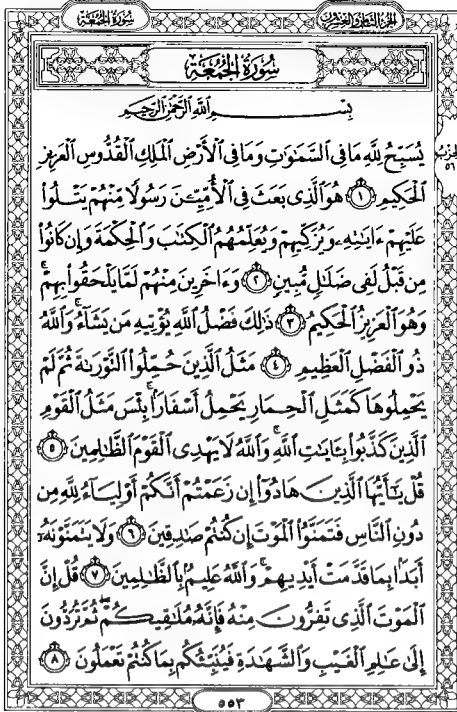 سُورَةُ الجُمُعَةِ الجُزءُ الثَّامِنُ وَالعِشْرُونَ
سُورَةُ الجُمُعَةِ
بِسْمِ اللَّهِ الرَّحْمَٰنِ الرَّحِيمِ
يُسَبِّحُ لِلَّهِ مَا فِي السَّمَٰوَٰتِ وَمَا فِي الْأَرْضِ الْمَلِكِ الْقُدُّوسِ الْعَزِيزِ
الحِزْبُ ٥٦
الْحَكِيمِ ١ هُوَ الَّذِي بَعَثَ فِي الْأُمِّيِّـۧنَ رَسُولًا مِّنْهُمْ يَتْلُوا۟
عَلَيْهِمْ ءَايَٰتِهِۦ وَيُزَكِّيهِمْ وَيُعَلِّمُهُمُ الْكِتَٰبَ وَالْحِكْمَةَ وَإِن كَانُوا۟
مِن قَبْلُ لَفِي ضَلَٰلٍ مُّبِينٍ ٢ وَءَاخَرِينَ مِنْهُمْ لَمَّا يَلْحَقُوا۟ بِهِمْ ۚ
وَهُوَ الْعَزِيزُ الْحَكِيمُ ٣ ذَٰلِكَ فَضْلُ اللَّهِ يُؤْتِيهِ مَن يَشَآءُ ۚ وَاللَّهُ
ذُو الْفَضْلِ الْعَظِيمِ ٤ مَثَلُ الَّذِينَ حُمِّلُوا۟ التَّوْرَىٰةَ ثُمَّ لَمْ
يَحْمِلُوهَا كَمَثَلِ الْحِمَارِ يَحْمِلُ أَسْفَارًۢا ۚ بِئْسَ مَثَلُ الْقَوْمِ
الَّذِينَ كَذَّبُوا۟ بِـَٔايَٰتِ اللَّهِ ۚ وَاللَّهُ لَا يَهْدِي الْقَوْمَ الظَّٰلِمِينَ ٥
قُلْ يَٰٓأَيُّهَا الَّذِينَ هَادُوٓا۟ إِن زَعَمْتُمْ أَنَّكُمْ أَوْلِيَآءُ لِلَّهِ مِن
دُونِ النَّاسِ فَتَمَنَّوُا۟ الْمَوْتَ إِن كُنتُمْ صَٰدِقِينَ ٦ وَلَا يَتَمَنَّوْنَهُۥٓ
أَبَدًۢا بِمَا قَدَّمَتْ أَيْدِيهِمْ ۚ وَاللَّهُ عَلِيمٌۢ بِالظَّٰلِمِينَ ٧ قُلْ إِنَّ
الْمَوْتَ الَّذِي تَفِرُّونَ مِنْهُ فَإِنَّهُۥ مُلَٰقِيكُمْ ۖ ثُمَّ تُرَدُّونَ
إِلَىٰ عَٰلِمِ الْغَيْبِ وَالشَّهَٰدَةِ فَيُنَبِّئُكُم بِمَا كُنتُمْ تَعْمَلُونَ ٨
٥٥٣